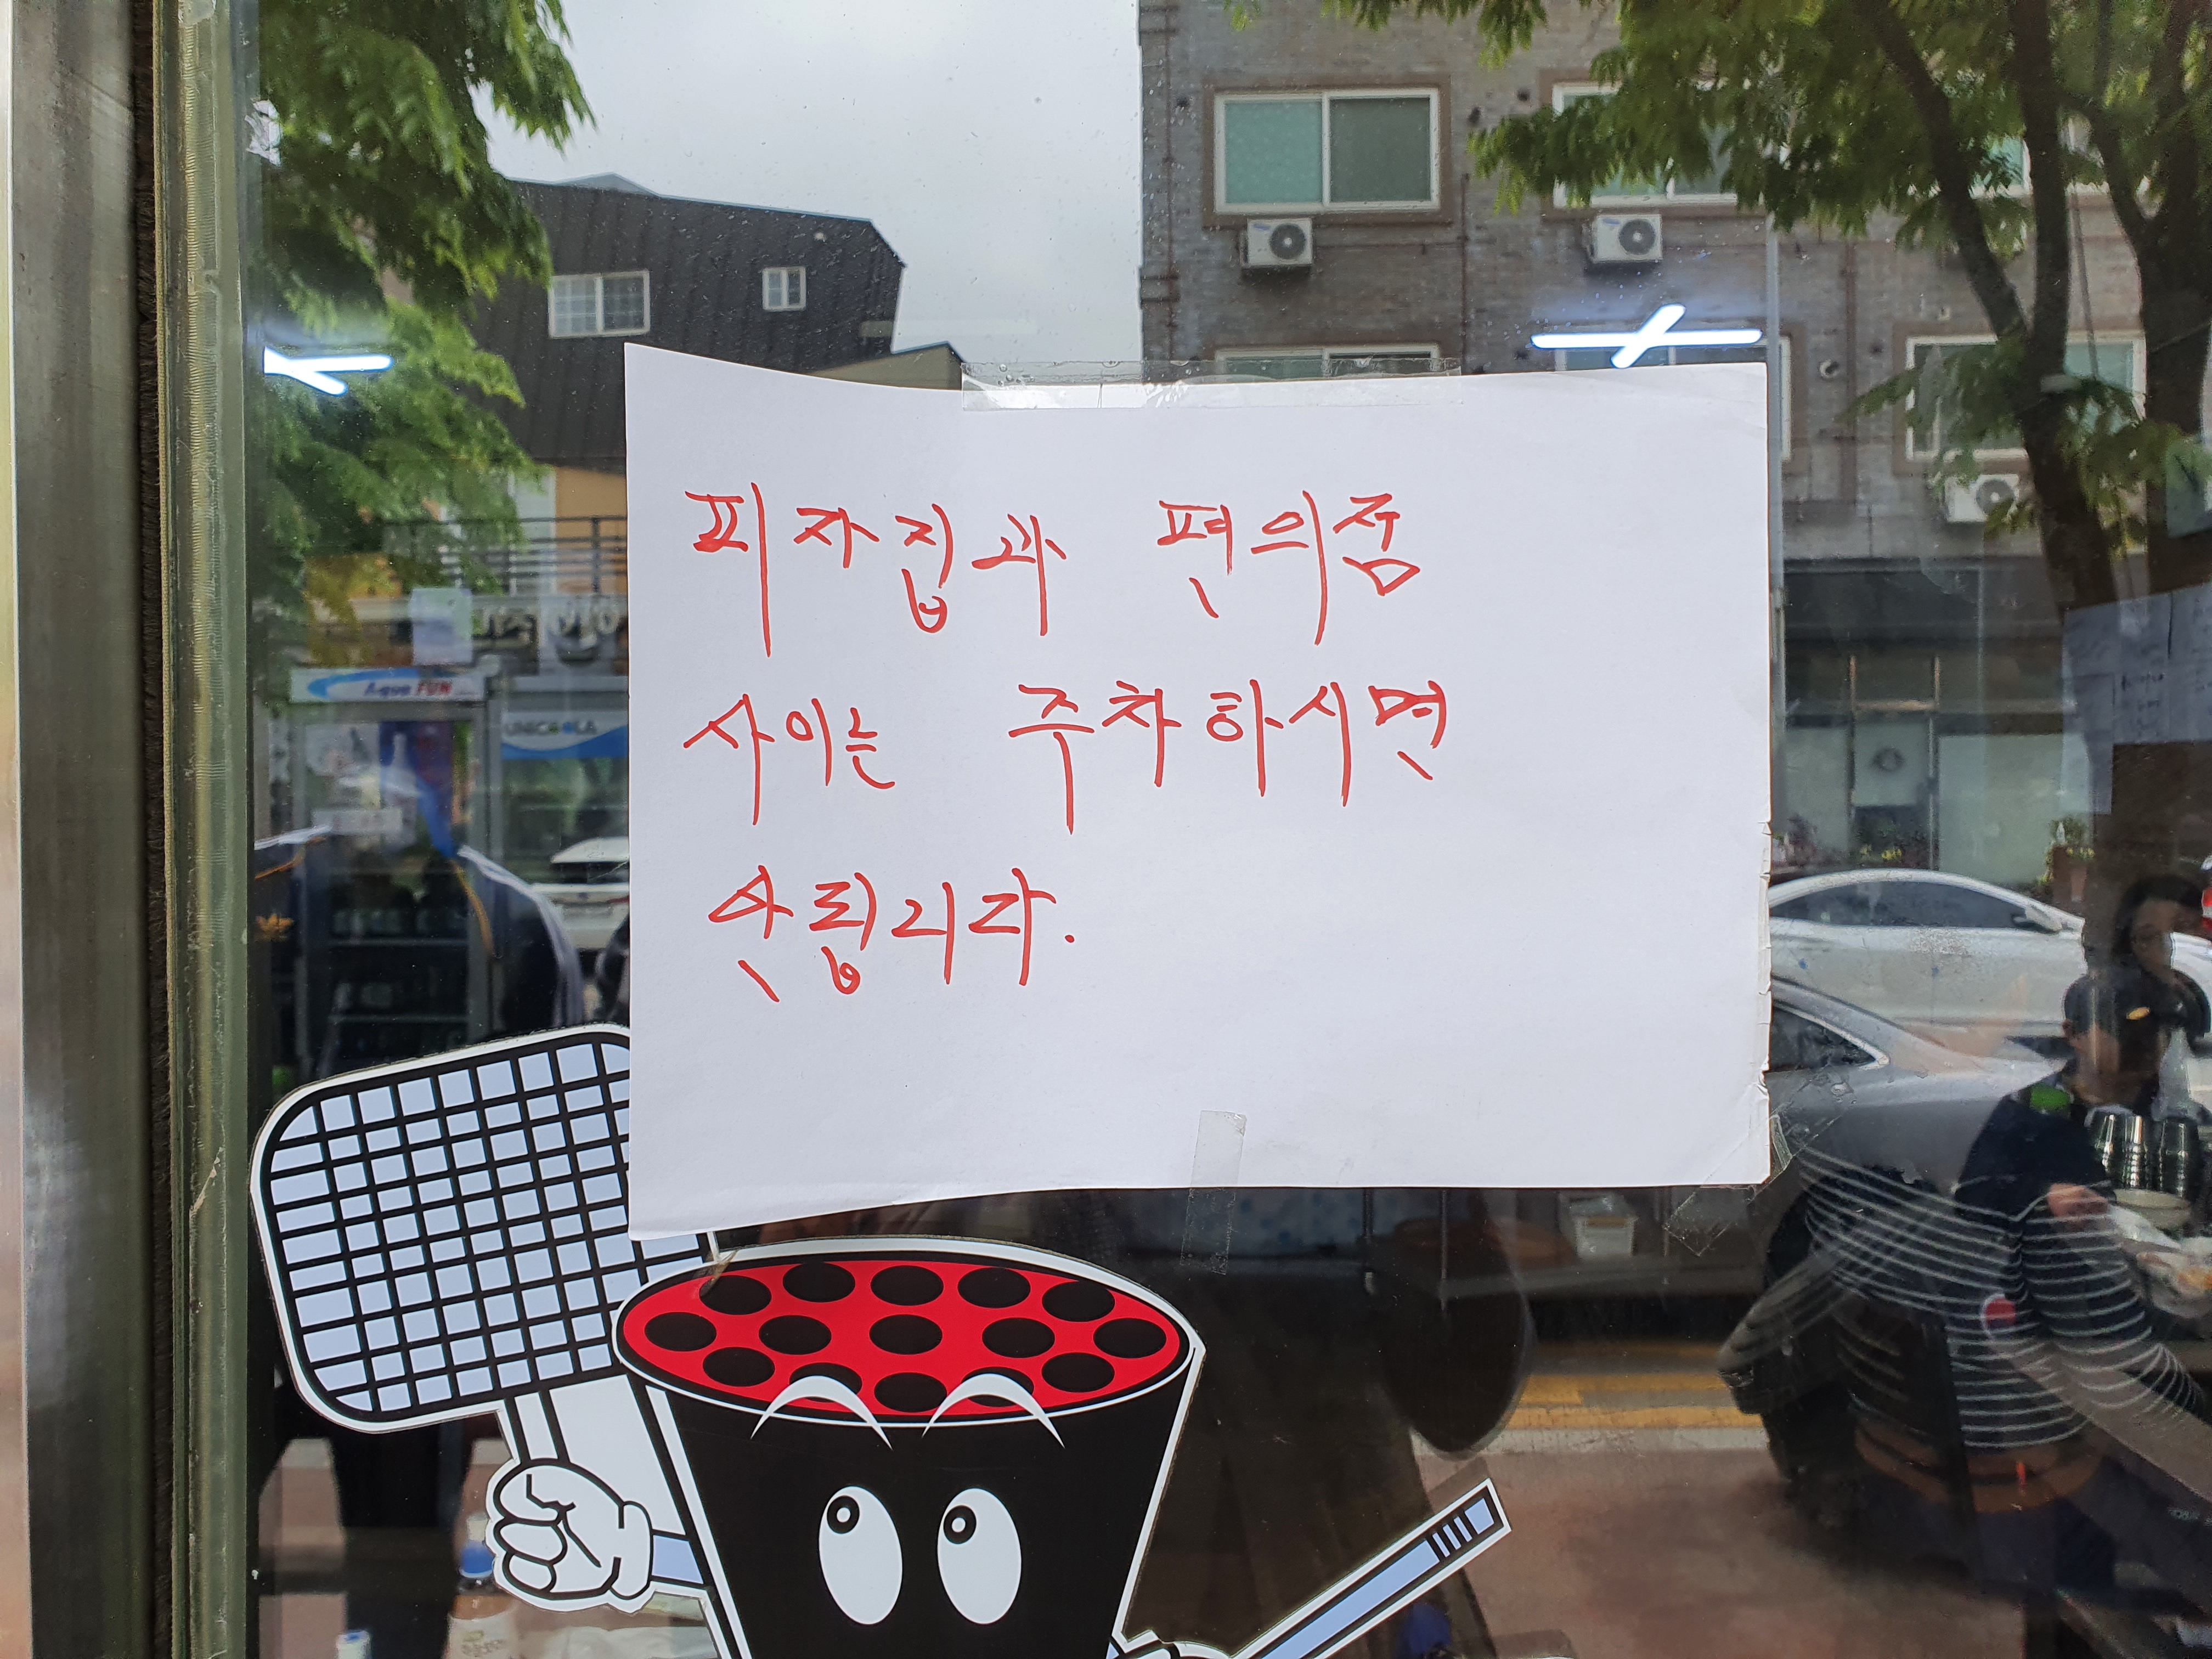 피자집과 편의줌
사이는 주차하시면
안됩니다.
Aqua FUN
UNICOOLA